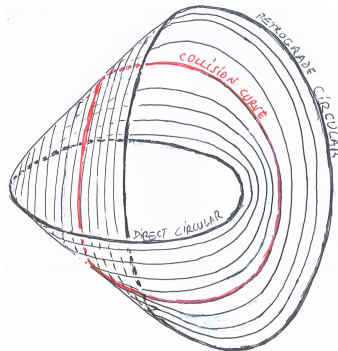 RETROGRADE CIRCULAR
COLLISION CURVE
DIRECT CIRCULAR